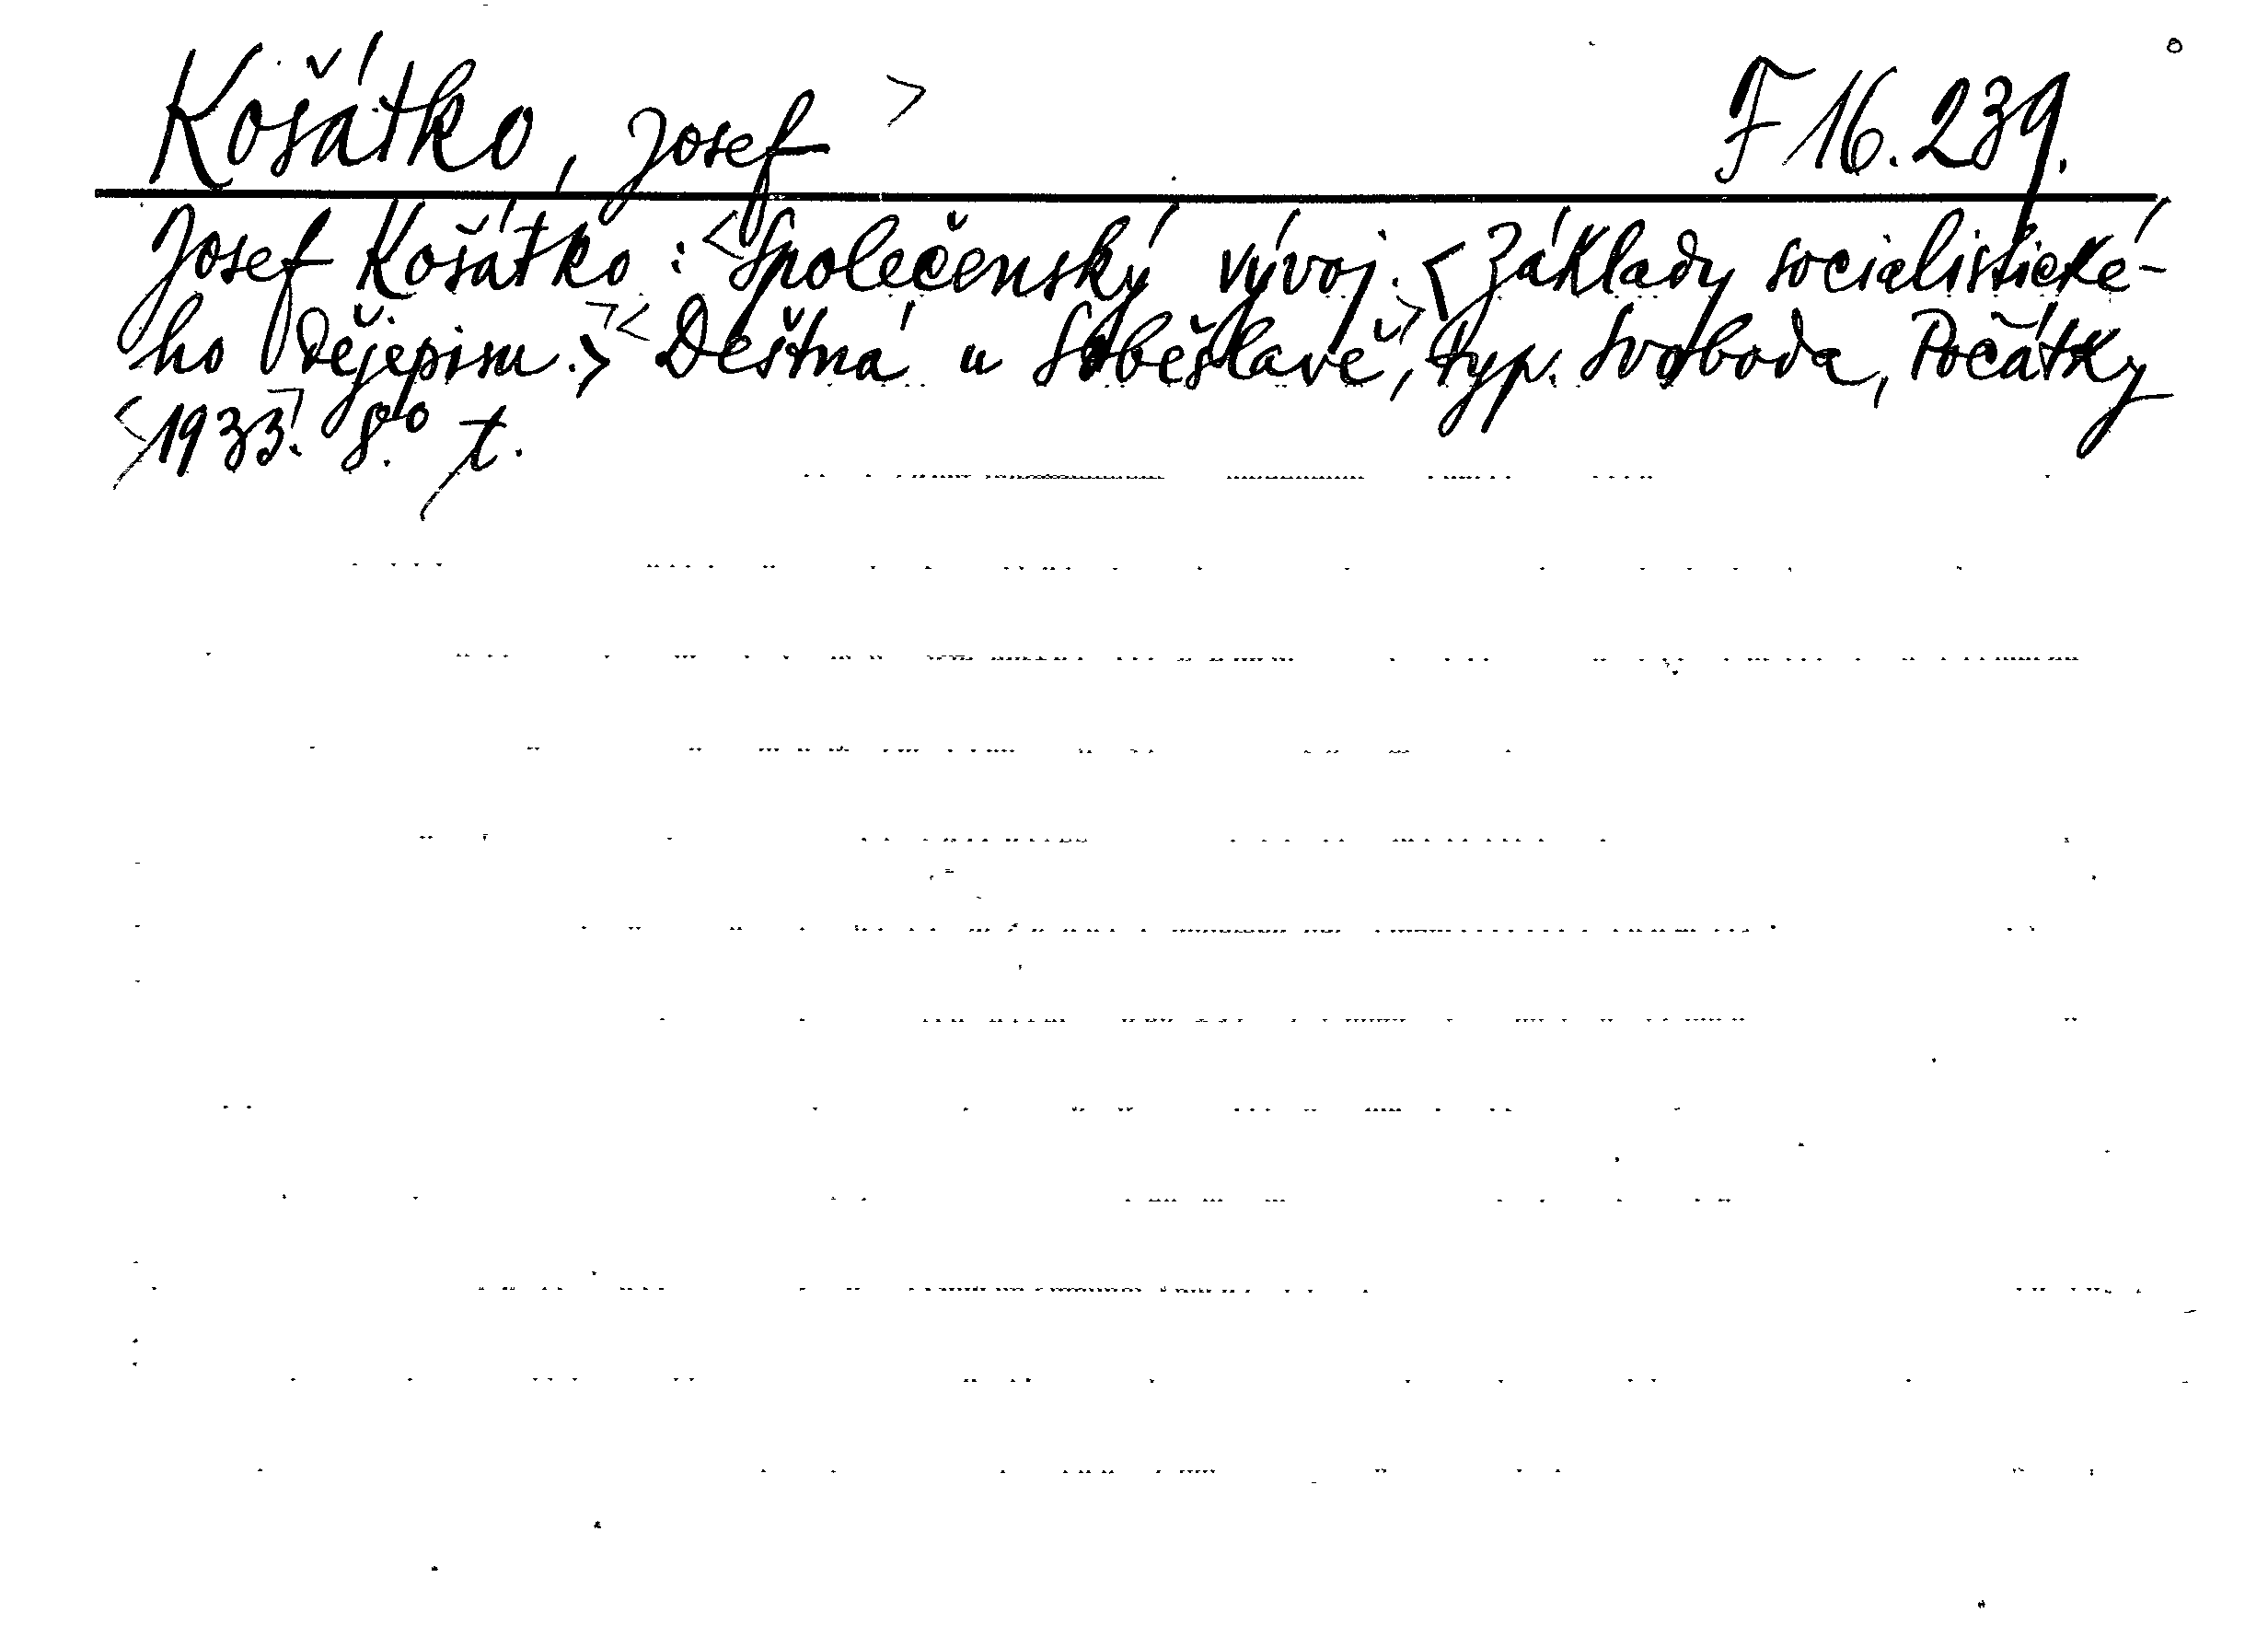 Košátko, Josef > F 16.239.
Josef Košátko: <Společenský vývoj. <Základy socialistické-
ho dějepisu.> ><Deštná u Soběslavě>, typ. Svoboda, Počátky
<1933>. 8.° t.